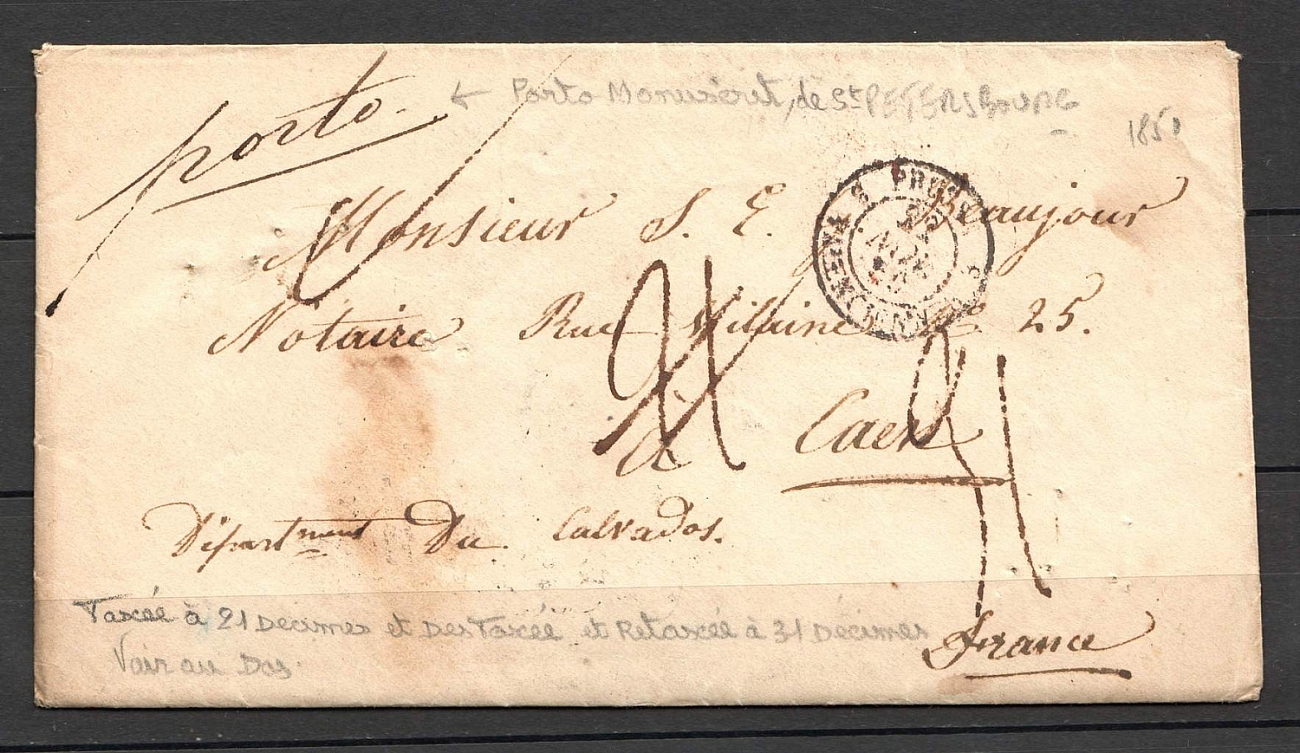 porto.
← Porto Manuscrit, de St PETERSBOURG
1850
Monsieur S. E. Beaujour
Notaire Rue 25.
à Caen
Départment Du Calvados.
France
21
PRUSSE 3 VALENCIENNES 3
NOV.
Taxée à 21 Decimes et DesTaxée et Retaxée à 31 Decimes
Voir au Dos.